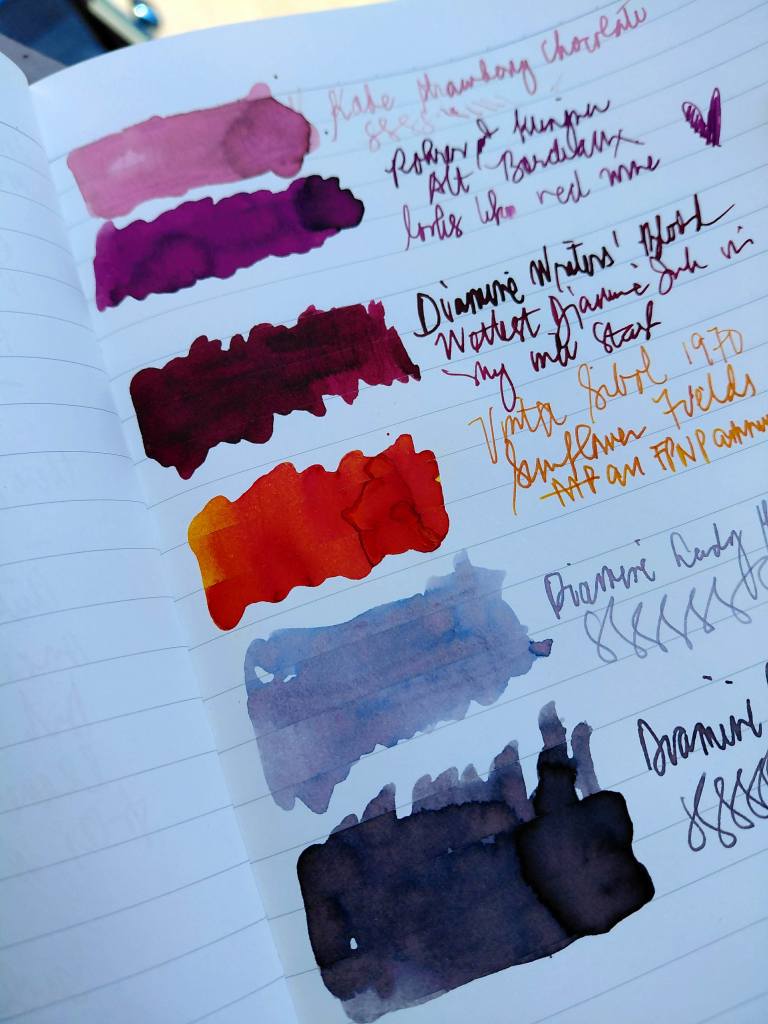 Kobe Strawberry Chocolate
888
Rohrer & Klingner
Alt Bordeaux
looks like red wine
Diamine Writers' Blood
Wettest Diamine Ink in
my ink stash
Vinta Sikat 1970
Sunflower Fields
an FPNP
Diamine Lady
8888888
Diamine
8888